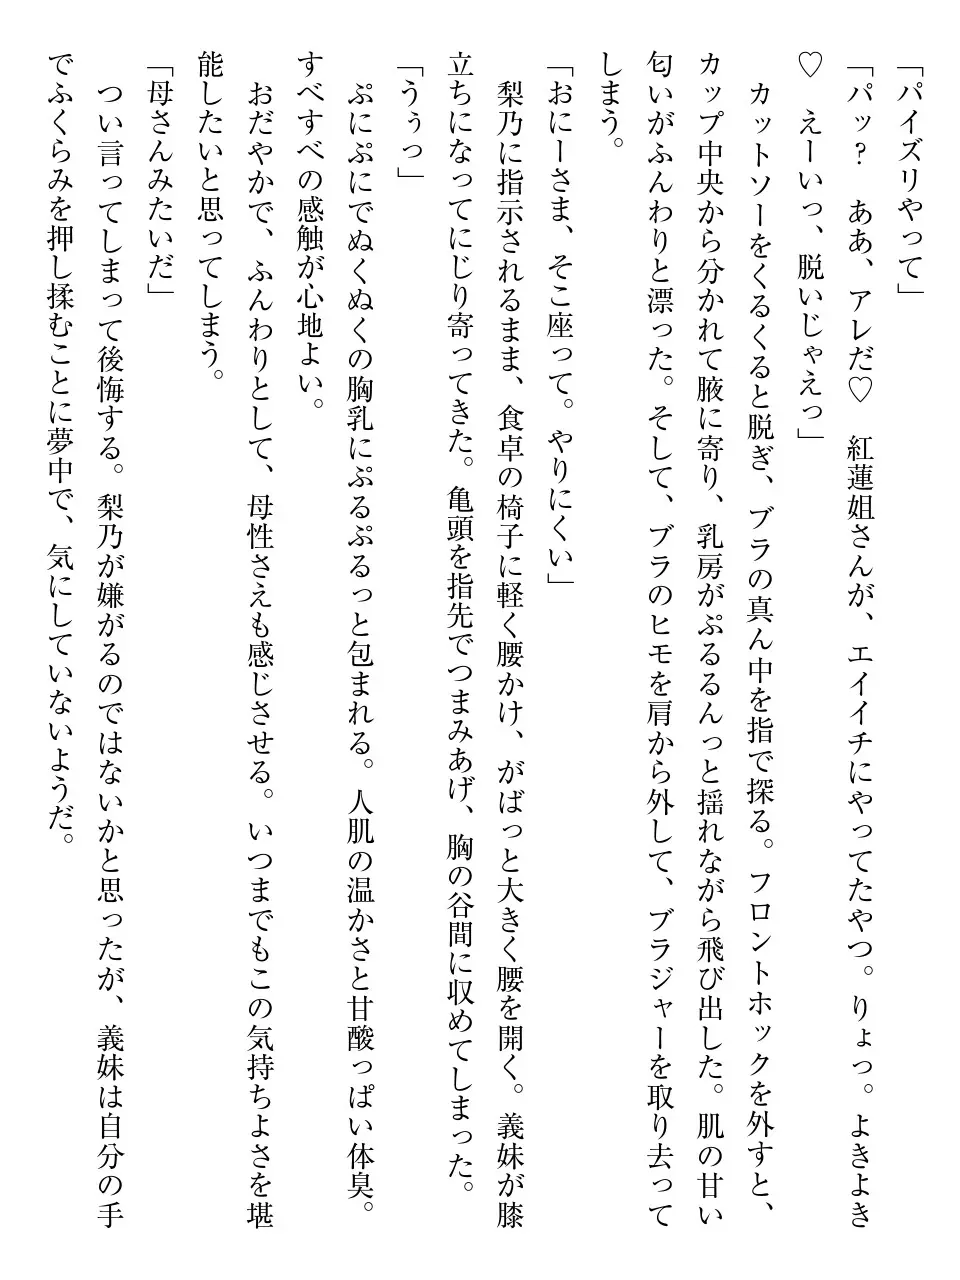 「パイズリやって」
「パッ?　ああ、アレだ♡　紅蓮姐さんが、エイイチにやってたやつ。りょっ。よきよき
♡　えーいっ、脱いじゃえっ」
　カットソーをくるくると脱ぎ、ブラの真ん中を指で探る。フロントホックを外すと、
カップ中央から分かれて腋に寄り、乳房がぷるるんっと揺れながら飛び出した。肌の甘い
匂いがふんわりと漂った。そして、ブラのヒモを肩から外して、ブラジャーを取り去って
しまう。
「おにーさま、そこ座って。やりにくい」
　梨乃に指示されるまま、食卓の椅子に軽く腰かけ、がばっと大きく腰を開く。義妹が膝
立ちになってにじり寄ってきた。亀頭を指先でつまみあげ、胸の谷間に収めてしまった。
「うぅっ」
　ぷにぷにでぬくぬくの胸乳にぷるぷるっと包まれる。人肌の温かさと甘酸っぱい体臭。
すべすべの感触が心地よい。
　おだやかで、ふんわりとして、母性さえも感じさせる。いつまでもこの気持ちよさを堪
能したいと思ってしまう。
「母さんみたいだ」
　つい言ってしまって後悔する。梨乃が嫌がるのではないかと思ったが、義妹は自分の手
でふくらみを押し揉むことに夢中で、気にしていないようだ。